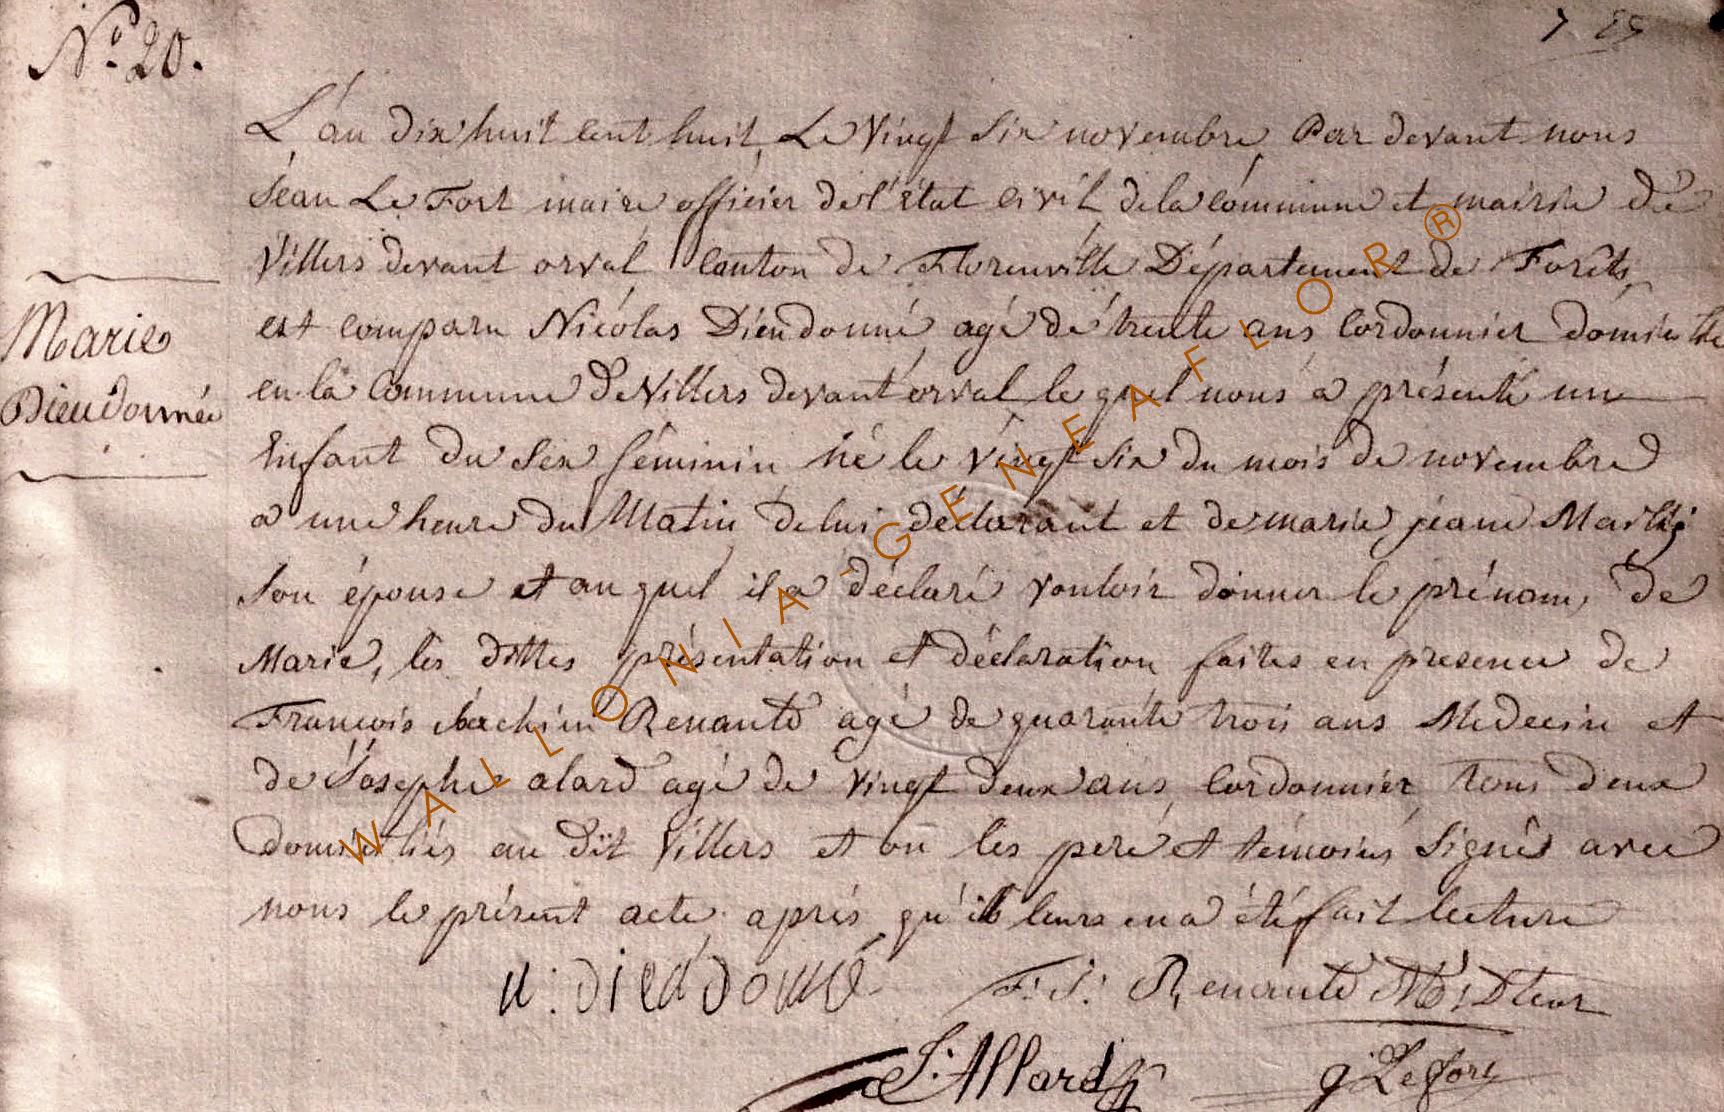 N.° 20.
L'an dix huit cent huit, Le Vingt Six novembre Par devant nous
Jean Le Fort maire officier de l'état civil de la commune et mairie de
Villers devant orval Canton de Florenville Département de Forêts,
est comparu Nicolas Dieudonné agé de trente ans Cordonnier domicilié
Marie
Dieudonnée
en la Commune De Villers devant orval le quel nous a présenté un
Enfant du Sex féminin né le vingt six du mois de novembre
a une heure du Matin de lui déclarant et de marie jeane
Son épouse et au quel il a déclaré vouloir donner le prénom, de
Marie, les dittes présentation et déclaration faites en presence de
François Renauld agé de quarante trois ans Medecin et
de Josephe alard agé de vingt deux ans, Cordonnier tous deux
domiciliés au dit Villers et on les pere et témoins Signé avec
nous le présent acte après qu'il leurs en a été fait lecture
n: dieudonné
F: J: Renauld
J: Allard
g: Lefort
WALLONIA-GENEAFLOR®